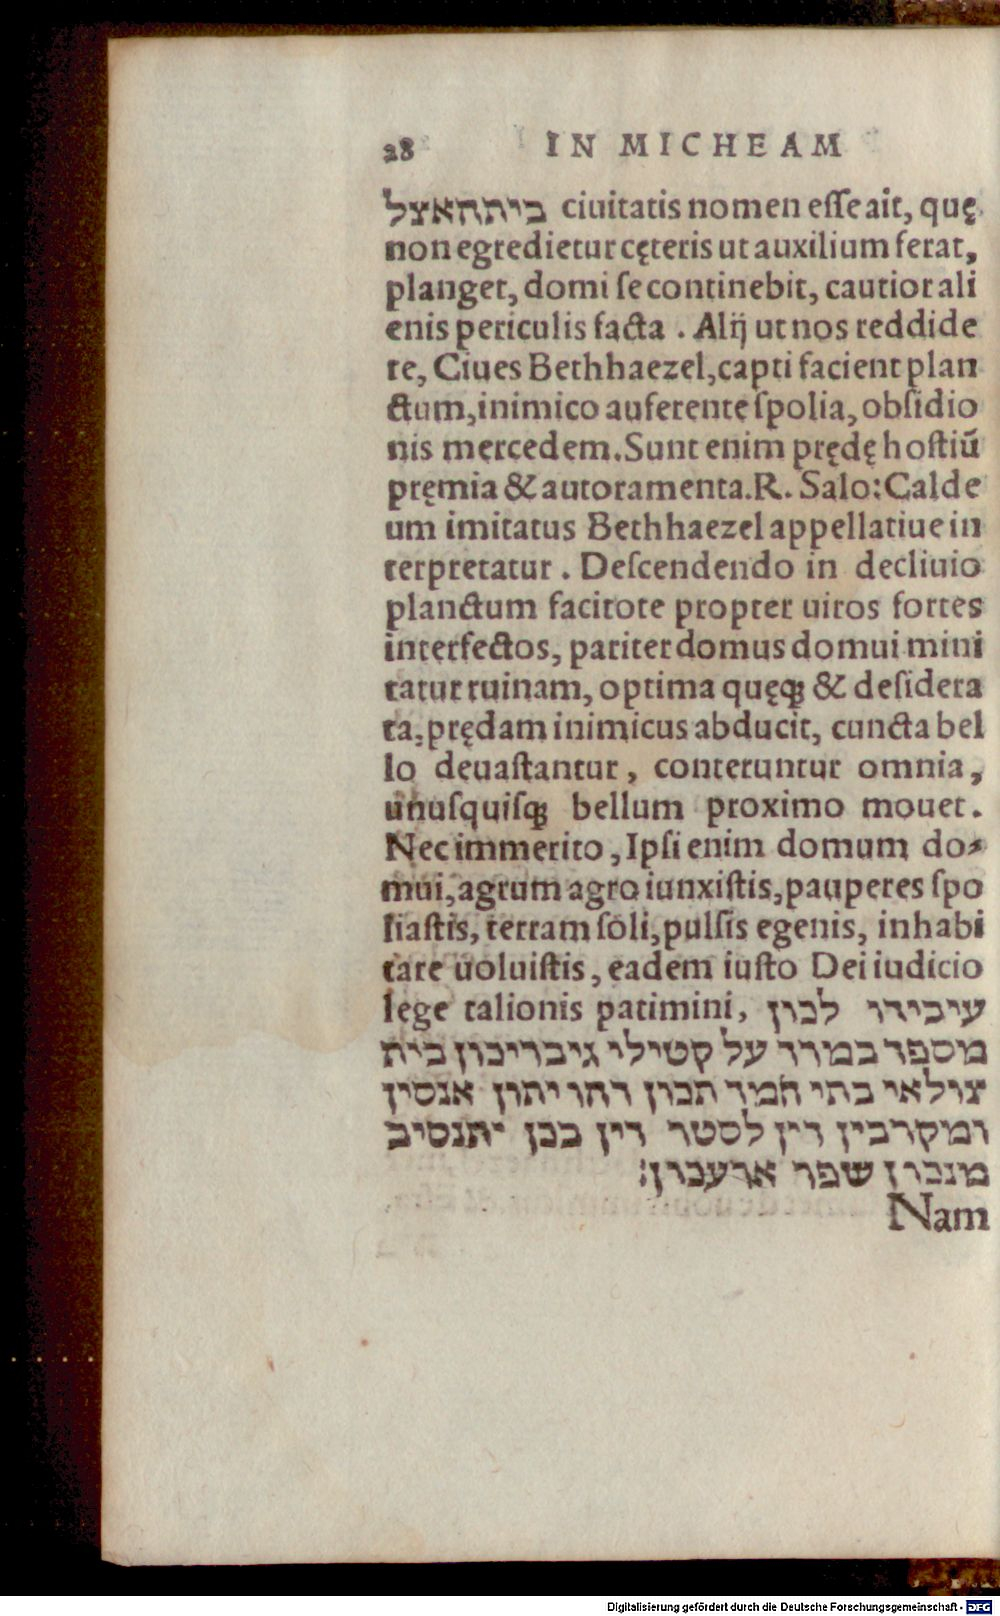 28 IN MICHEAM
ביתהאצל ciuitatis nomen esse ait, quę
non egredietur cęteris ut auxilium ferat,
planget, domi se continebit, cautior ali
enis periculis facta . Alij ut nos reddide
re, Ciues Bethhaezel, capti facient plan
ctum, inimico auferente spolia, obsidio
nis mercedem. Sunt enim prędę hostiū
pręmia & autoramenta. R. Salo: Calde
um imitatus Bethhaezel appellatiue in
terpretatur . Descendendo in decliuio
planctum facitote propter uiros fortes
interfectos, pariter domus domui mini
tatur ruinam, optima quęq; & desidera
ta, prędam inimicus abducit, cuncta bel
lo deuastantur, conteruntur omnia,
unusquisq; bellum proximo mouet.
Nec immerito, Ipsi enim domum do-
mui, agrum agro iunxistis, pauperes spo
liastis, terram soli, pulsis egenis, inhabi
tare uoluistis, eadem iusto Dei iudicio
lege talionis patimini, עיבידו לכון
מספד במרר על קטילי גיבריכון בית
צולאי בתי חמד תכון דהו יתון אנסין
ומקרבין דין לסטר דין בכן יתנסיב
מנכון שפר ארעכון:
Nam
Digitalisierung gefördert durch die Deutsche Forschungsgemeinschaft - DFG